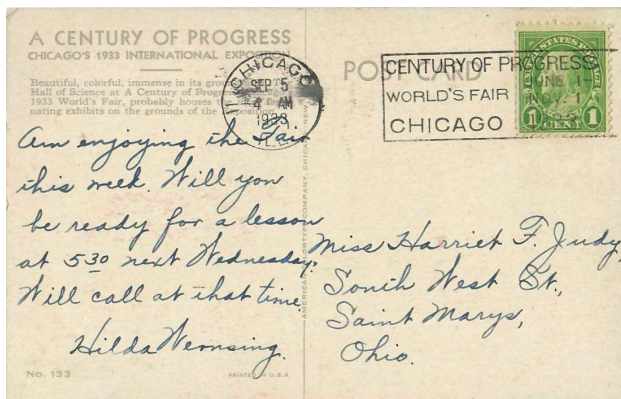 A CENTURY OF PROGRESS
CHICAGO'S 1933 INTERNATIONAL EXPOSITION
Beautiful, colorful, immense in its
Hall of Science at A Century of Progress
1933 World's Fair, probably houses the
nating exhibits on the grounds of the
CHICAGO
SEP 5
4 AM
1933
ILL.
POST CARD
CENTURY OF PROGRESS
JUNE 1-
WORLD'S FAIR NOV. 1
CHICAGO
UNITED STATES POSTAGE
1 CENT 1
Am enjoying the Fair
this week. Will you
be ready for a lesson
at 530 next Wednesday.
Will call at that time.
Hilda Wernsing.
Miss Harriet F. Judy,
South West St.,
Saint Marys,
Ohio.
No. 133
PRINTED IN U.S.A.